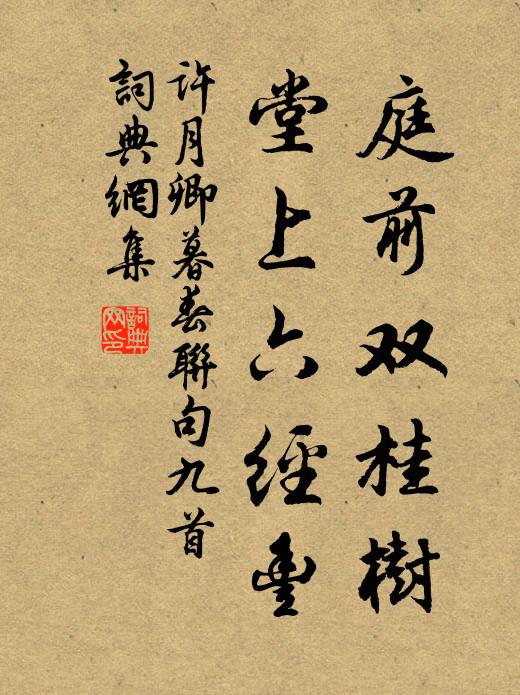 庭前双桂樹
堂上六經
許月卿暮春聯句九首
詞典網集
詞典
网印